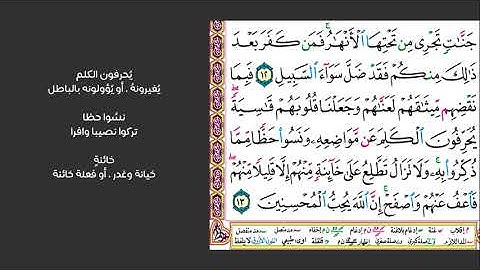 جَنَّٰتٍ تَجْرِى مِن تَحْتِهَا ٱلْأَنْهَٰرُ ۚ فَمَن كَفَرَ بَعْدَ
ذَٰلِكَ مِنكُمْ فَقَدْ ضَلَّ سَوَآءَ ٱلسَّبِيلِ ١٢ فَبِمَا
نَقْضِهِم مِّيثَٰقَهُمْ لَعَنَّٰهُمْ وَجَعَلْنَا قُلُوبَهُمْ قَٰسِيَةً ۖ
يُحَرِّفُونَ ٱلْكَلِمَ عَن مَّوَاضِعِهِۦ ۙ وَنَسُوا۟ حَظًّا مِّمَّا
ذُكِّرُوا۟ بِهِۦ ۚ وَلَا تَزَالُ تَطَّلِعُ عَلَىٰ خَآئِنَةٍ مِّنْهُمْ إِلَّا قَلِيلًا مِّنْهُمْ ۖ
فَٱعْفُ عَنْهُمْ وَٱصْفَحْ ۚ إِنَّ ٱللَّهَ يُحِبُّ ٱلْمُحْسِنِينَ ١٣
يُحرفون الكلم
يُغيرونهُ ، أو يُؤولونه بالباطل
نسُوا حظا
تركوا نصيبا وافرا
خائنةٍ
خيانة وغدر ، أو فعلة خائنة